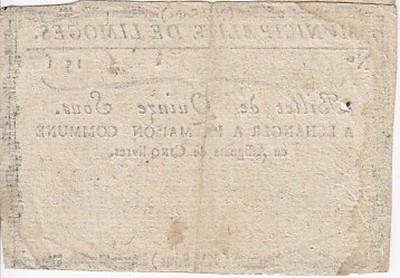 MUNICIPALITÉ DE LIMOGES.
No. 15 s
Billet de Quinze Sous.
A ECHANGER A LA MAISON COMMUNE
en Assignats de Cinq livres.